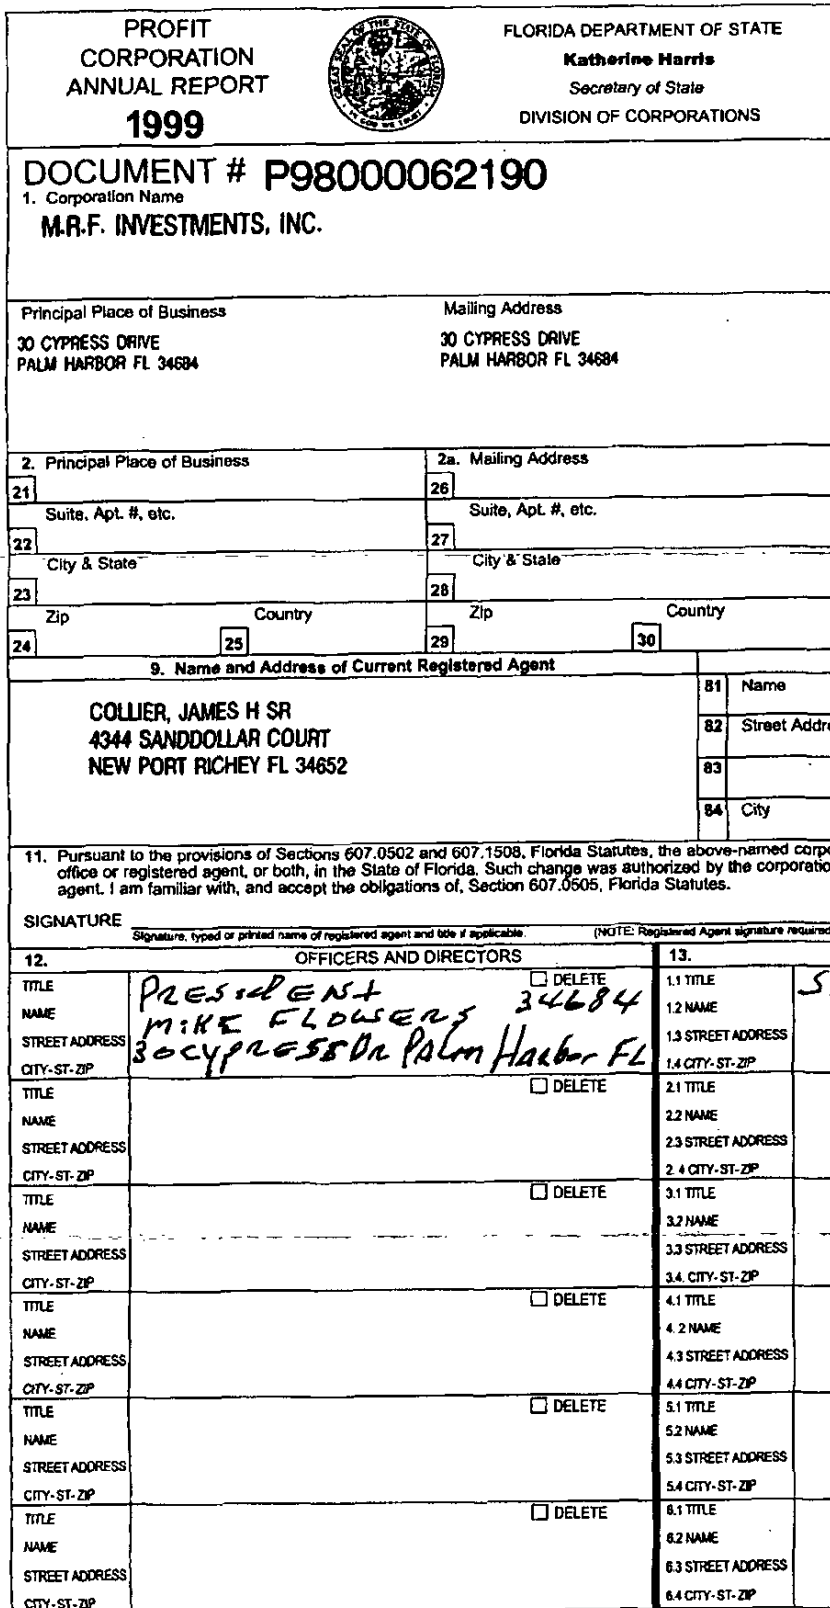 PROFIT
CORPORATION
ANNUAL REPORT
1999
GREAT SEAL OF THE STATE OF FLORIDA
IN GOD WE TRUST
FLORIDA DEPARTMENT OF STATE
Katherine Harris
Secretary of State
DIVISION OF CORPORATIONS
DOCUMENT # P98000062190
1. Corporation Name
M.R.F. INVESTMENTS, INC.
Principal Place of Business
Mailing Address
30 CYPRESS DRIVE
PALM HARBOR FL 34684
30 CYPRESS DRIVE
PALM HARBOR FL 34684
2. Principal Place of Business
2a. Mailing Address
21
26
Suite, Apt. #, etc.
Suite, Apt. #, etc.
22
27
City & State
City & State
23
28
Zip
Country
Zip
Country
24
25
29
30
9. Name and Address of Current Registered Agent
81 Name
COLLIER, JAMES H SR
4344 SANDDOLLAR COURT
NEW PORT RICHEY FL 34652
82 Street Addre
83
84 City
11. Pursuant to the provisions of Sections 607.0502 and 607.1508, Florida Statutes, the above-named corpo
office or registered agent, or both, in the State of Florida. Such change was authorized by the corporatio
agent. I am familiar with, and accept the obligations of, Section 607.0505, Florida Statutes.
SIGNATURE
Signature, typed or printed name of registered agent and title if applicable.
(NOTE: Registered Agent signature required
12. OFFICERS AND DIRECTORS
13.
TITLE PRESIdENt DELETE
NAME MIKE FLOWERS 34684
STREET ADDRESS 30 CYPRESS DR PALm Harbor FL
CITY-ST-ZIP
1.1 TITLE S
1.2 NAME
1.3 STREET ADDRESS
1.4 CITY-ST-ZIP
TITLE DELETE
NAME
STREET ADDRESS
CITY-ST-ZIP
2.1 TITLE
2.2 NAME
2.3 STREET ADDRESS
2.4 CITY-ST-ZIP
TITLE DELETE
NAME
STREET ADDRESS
CITY-ST-ZIP
3.1 TITLE
3.2 NAME
3.3 STREET ADDRESS
3.4. CITY-ST-ZIP
TITLE DELETE
NAME
STREET ADDRESS
CITY-ST-ZIP
4.1 TITLE
4.2 NAME
4.3 STREET ADDRESS
4.4 CITY-ST-ZIP
TITLE DELETE
NAME
STREET ADDRESS
CITY-ST-ZIP
5.1 TITLE
5.2 NAME
5.3 STREET ADDRESS
5.4 CITY-ST-ZIP
TITLE DELETE
NAME
STREET ADDRESS
CITY-ST-ZIP
6.1 TITLE
6.2 NAME
6.3 STREET ADDRESS
6.4 CITY-ST-ZIP